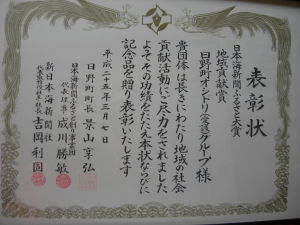 表彰状
日本海新聞ふるさと大賞
地域貢献賞
日野町オシドリグループ様
貴団体は長きにわたり地域の社会
貢献活動にご尽力をされました
よってその功績をたたえ本状ならびに
記念品を贈り表彰いたします
平成二十五年三月七日
日野町町長 景山享弘
代表理事 成川勝敏
新日本海新聞社
吉岡利固